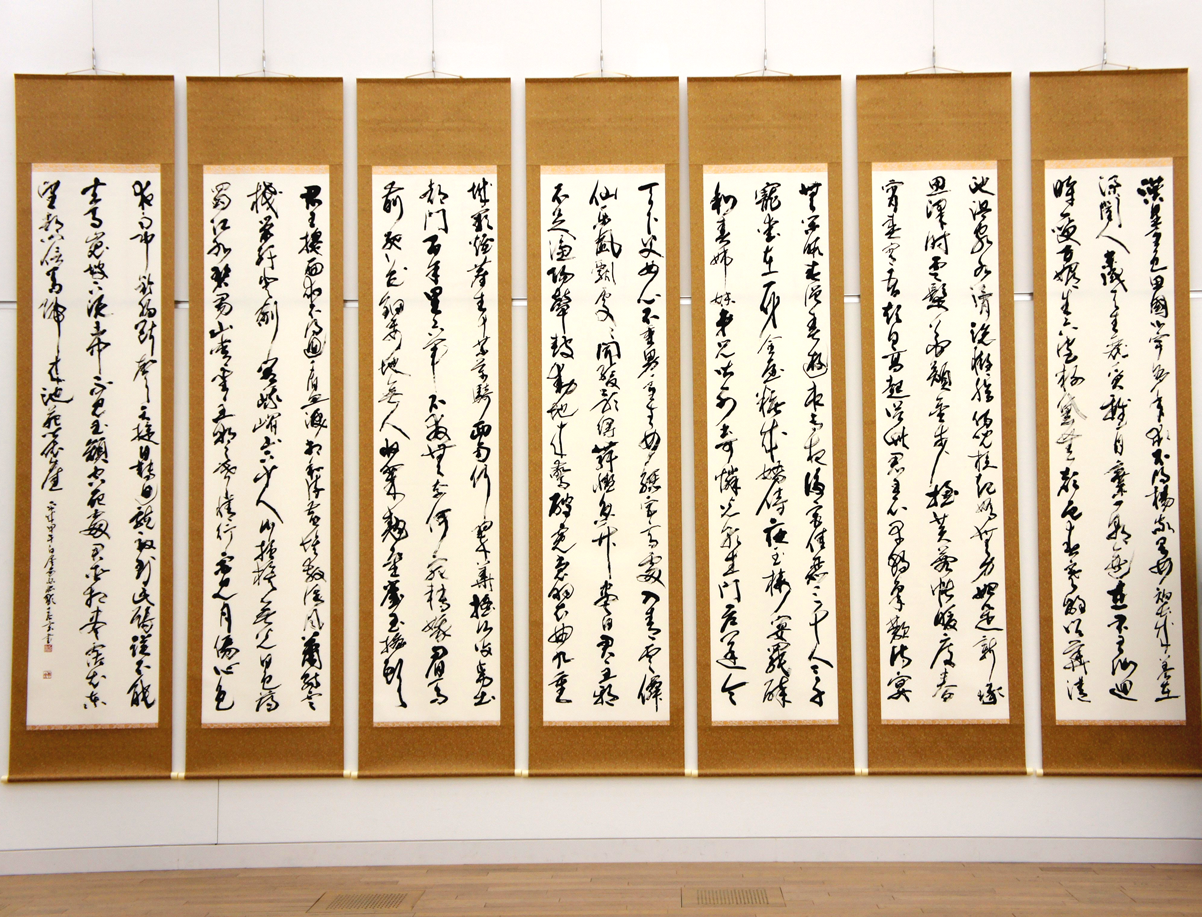 漢皇重色思傾國御宇多年求不得楊家有女初長成養在
深閨人未識天生麗質難自棄一朝選在君王側迴
眸一笑百媚生六宮粉黛無顏色春寒賜浴華清
池温泉水滑洗凝脂侍兒扶起嬌無力始是新承
恩澤時雲鬢花顏金步搖芙蓉帳暖度春
宵春宵苦短日高起從此君王不早朝承歡侍宴
無閑暇春從春遊夜專夜後宮佳麗三千人三千
寵愛在一身金屋粧成嬌侍夜玉樓宴罷醉
和春姊妹弟兄皆列土可憐光彩生門戶遂令
天下父母心不重男重生女驪宮高處入青雲
仙樂風飄處處聞緩歌慢舞凝絲竹盡日君王看
不足漁陽鼙鼓動地來驚破霓裳羽衣曲九重
城闕煙塵生千乘萬騎西南行翠華搖搖行復止西出
都門百餘里六軍不發無奈何宛轉蛾眉馬
前死花鈿委地無人收翠翹金雀玉搔頭
君王掩面救不得迴看血淚相和流黃埃散漫風蕭索雲
棧縈紆登劍閣峨嵋山下少人行旌旗無光日色薄
蜀江水碧蜀山青聖主朝朝暮暮情行宮見月傷心色
夜雨聞鈴腸斷聲天旋日轉迴龍馭到此躊躇不能
去馬嵬坡下泥土中不見玉顏空死處君臣相顧盡霑衣東
望都門信馬歸歸來池苑皆依舊